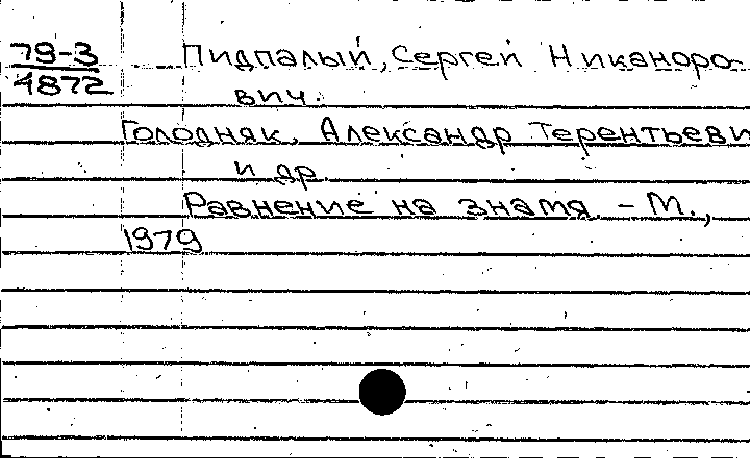 79-3
4872
Пидпалый, Сергей Никаноро-
вич.
Голодняк, Александр Терентьеви
и др.
Равнение на знамя. - М.,
1979